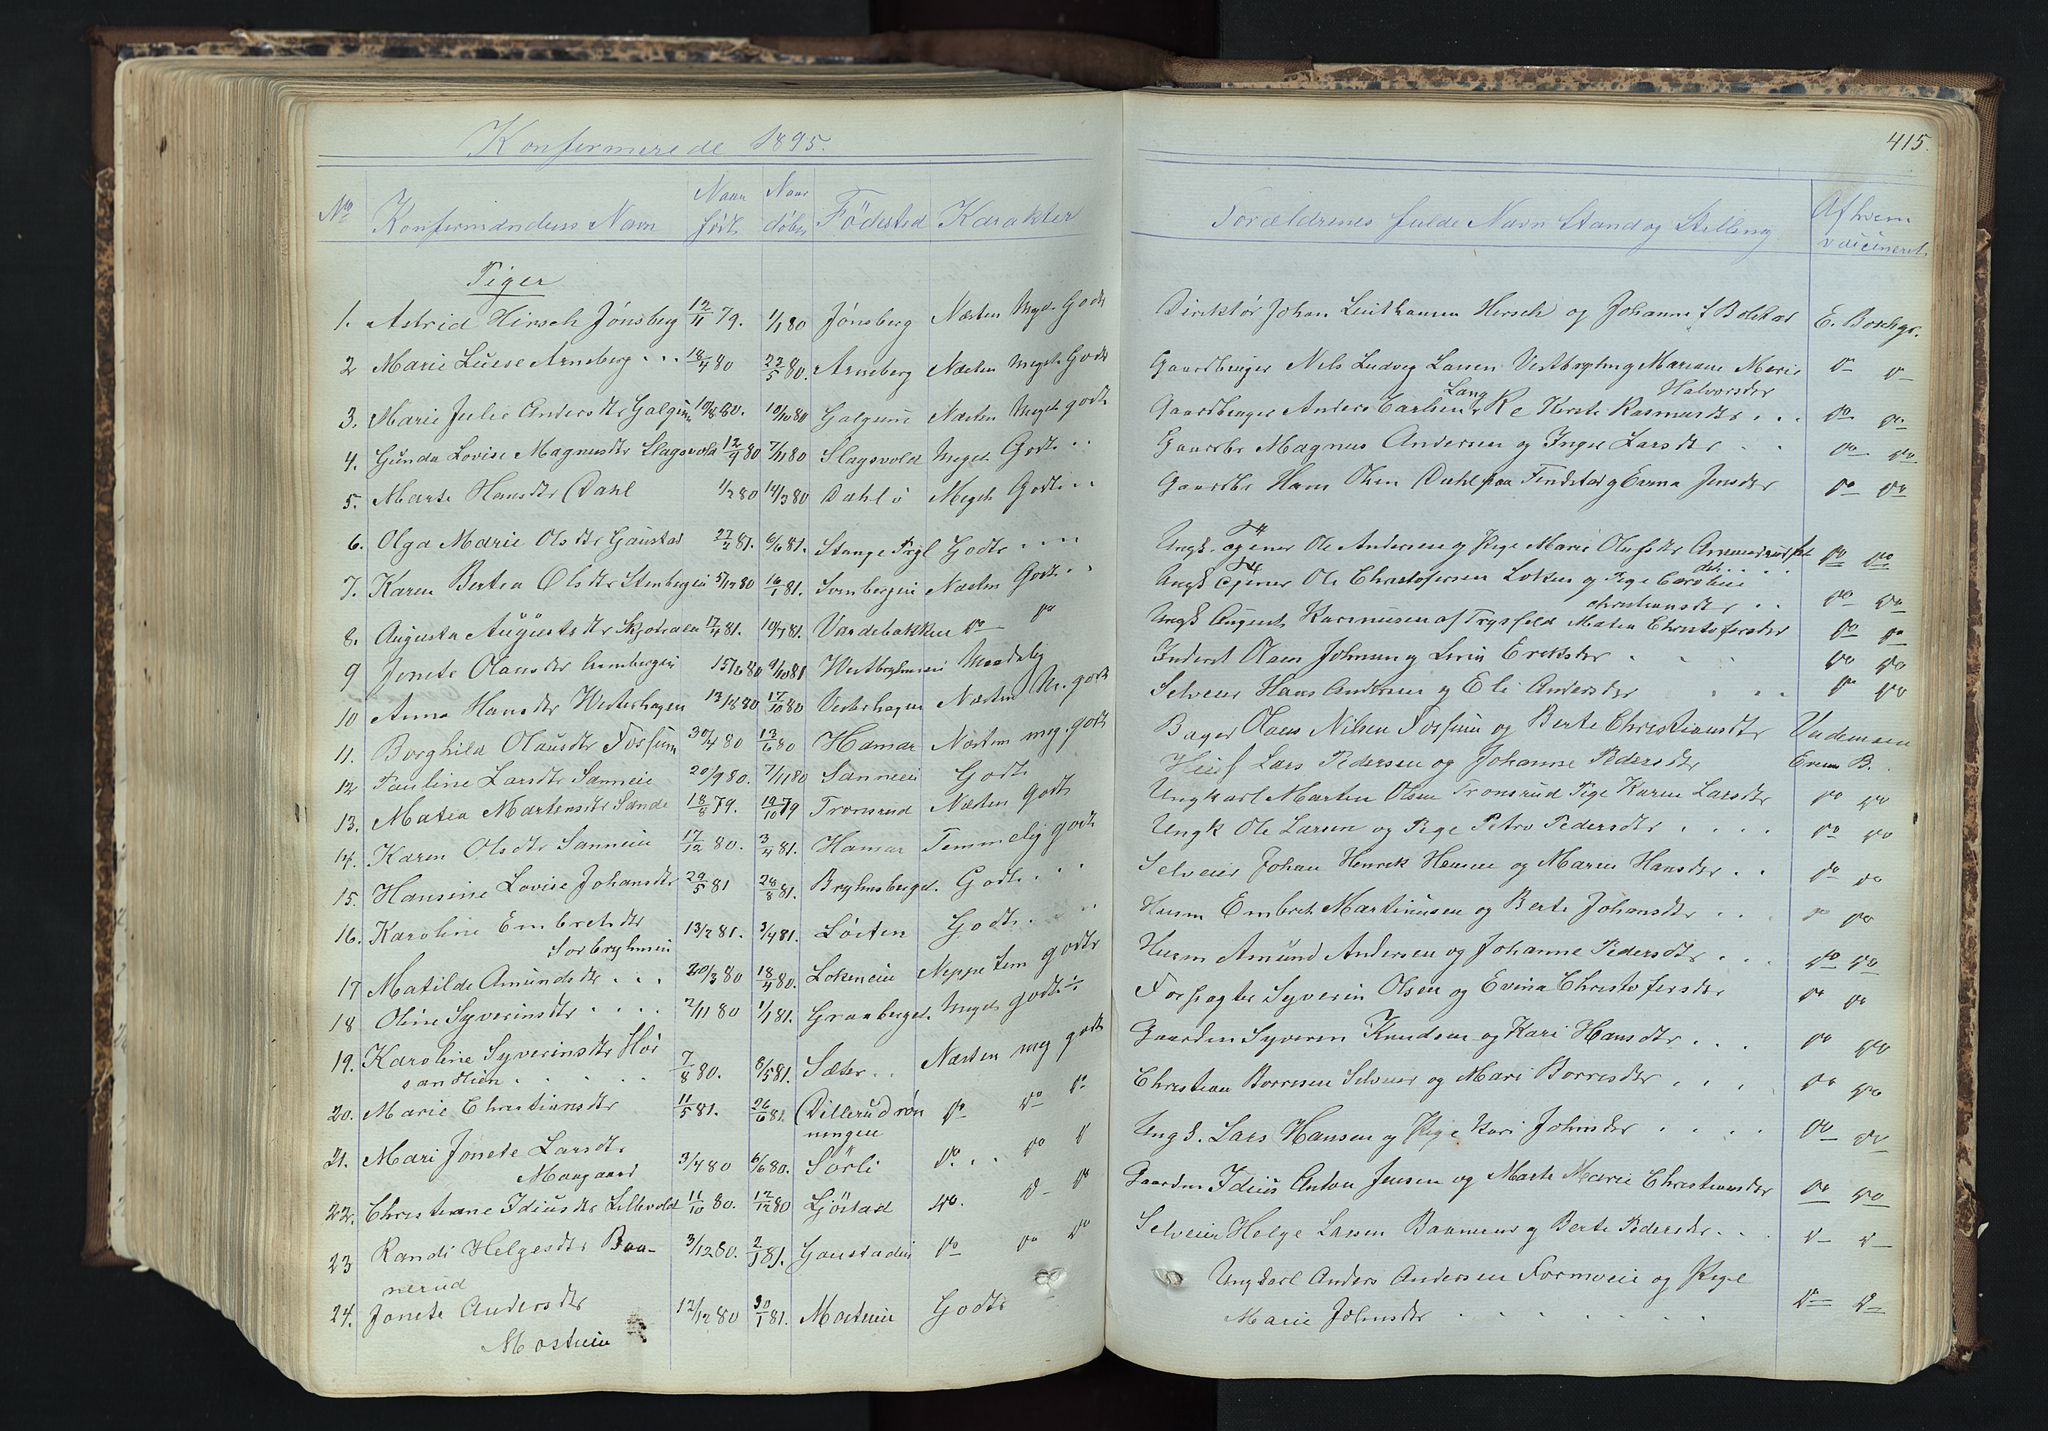 Konfirmerede 1895.
415.
No Konfirmandens Navn Naar født Naar døbt Födested Karakter Forældrenes fulde Navn Stand og Stilling Af hvem vaccineret
Piger
1. Astrid Hirsch Jönsberg 12/11 79. 1/1 80 Jönsberg Næsten Meget Godt Direktör Johan Hirsch og Johanne E. Boschgr.
2 Marie Luise Arneberg 18/4 80 23/5 80. Arneberg Næsten Meget Godt Gaardbruger Nils Ludvig Larsen Mariane Marie Halvorsdtr do do
3. Marie Julie Andersdtr Galgum 10/8 80. 10/10 80 Galgum Næsten Meget godt Gaardbruger Anders Carlsen Lang Rasmusdtr do do
4. Gunda Lovise Magnusdtr Slagsvold 12/9 80 7/11 80 Slagsvold Meget Godt Gaardbr Magnus Andersen og Inger Larsdtr do do
5. Marte Hansdtr Dahl 1/2 80 14/3 80 Dahl ö Meget Godt Gaardbr Hans Olsen Dahl paa Jensdtr do do
6. Olga Marie Olsdtr Gaustad 27/2 81. 6/6 81. Stange Prgl Godt Ungk. og Tjener Ole Andersen og Pige Marie Olufsdtr do do
7. Karen Bertea Olsdtr Stenbergeie 5/12 80 16/1 81. Svenbergeie Næsten Godt Ungk Tjener Ole Christofersen Löken og Pige Caroline Christiansdtr do do
8. Augusta Augustsdtr 17/4 81. 10/7 81. Vardebakken do do Ungk August Rasmusen af Trysfeld Matea Christofersdtr do do
9 Jonete Olausdtr Arnbergeie 15/6 80 9/10 81 Vestbryhneeie Maadelig Inderst Olaus Johnsen og Lovise Eriksdtr do do
10 Anna Hansdtr Vesterhagen 12/8 80 17/10 80 Vesterhagen Næsten M. godt Selveier Hans Andersen og Eli Andersdtr do do
11. Borghild Olausdtr Fossum 30/4 80 13/6 80 Hamar Næsten meg. godt Bager Olaus Nilsen Fossum og Berte Christiansdtr
12 Pauline Larsdtr Sanneeie 20/9 80. 7/11 80 Sanneeie Godt Lars Pedersen og Johanne Pedersdtr Even B.
13. Matea Martensdtr Sande 18/8 79. 19/10 79 Tromsrud Næsten Godt Ungkarl Marten Olsen Tromsrud Pige Karen Larsdtr do do
14. Karen Olsdtr Sanneeie 17/12 80. 3/4 81. Hamar Temmelig godt Ungk Ole Larsen og Pige Petra Pedersdtr do do
15. Hansine Lovise Johansdtr 29/5 81 28/8 81. Bryhnsberget. Godt Selveier Johan Henrik Hansen og Maren Hansdtr do do
16. Karoline Embretsdtr Sörbryhneeie 13/2 81. 3/4 81. Löiten Godt Husm Embret Martinusen og Berte Johansdtr do do
17 Matilde Amundsdtr 20/3 80 18/4 80. Lökeneie Neppe tem godt Husm Amund Andersen og Johanne Pedersdtr do do
18 Oline Syverinsdtr 2/11 80 1/1 81. Graaberget. Meget godt Forpagter Syverin Olsen og Evina Christofersdtr do do
19. Karoline Syverinsdtr Hörsandlien 7/8 80. 8/5 81. Sæter Næsten meg godt Gaardm Syveren Knudsen og Kari Hansdtr do do
20. Marie Christiansdtr 11/5 81. 26/6 81. Dillerudröningen do do do Christian Borresen Selveier og Mari Borresdtr do do
21. Mari Jonete Larsdtr Maagaard 3/4 80 6/6 80. Sörli do do do Ungk. Lars Hansen og Pige Kari Johnsdtr do do
22. Christiane Idiusdtr Lillevold 11/10 80. 12/12 80 Gjöstad do. do do Gaardm Idius Anton Jensen og Marte Marie Christiansdtr do do
23 Randi Helgesdtr Baanerud 3/12 80. 2/1 81. Gaustadeie do do do Selveier Helge Larsen Baanerud og Berte Pedersdtr do do
24. Jonete Andersdtr Mostueie 12/12 80 30/1 81. Mostueie Godt Ungkarl Anders Andersen Formoeie og Pige Marie Johnsdtr do do